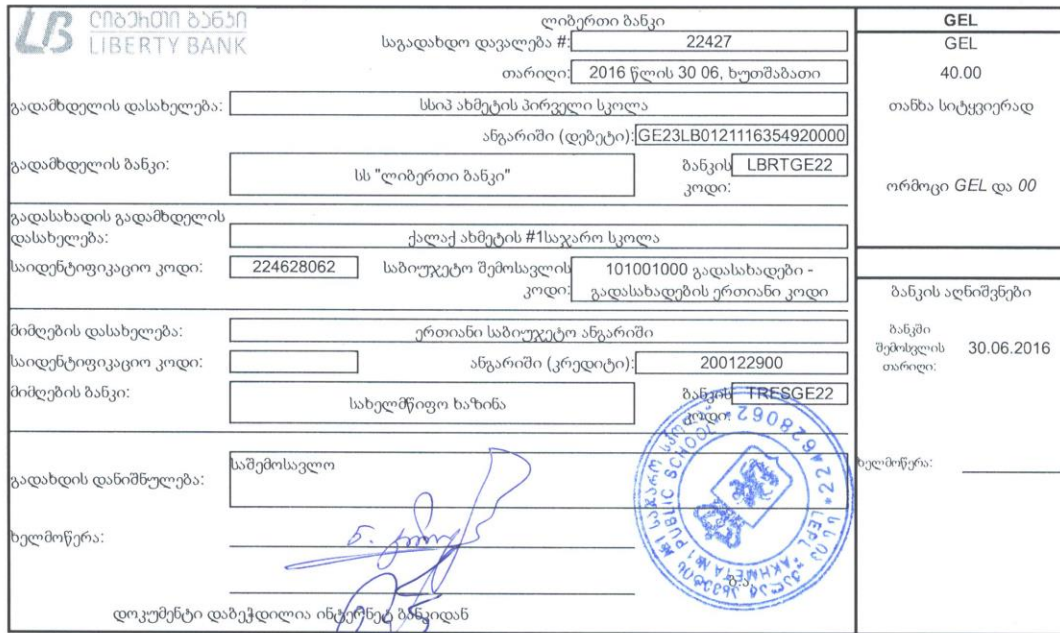 ლიბერთი ბანკი
LIBERTY BANK
ლიბერთი ბანკი
საგადახდო დავალება #: 22427
თარიღი: 2016 წლის 30 06, ხუთშაბათი
გადამხდელის დასახელება: სსიპ ახმეტის პირველი სკოლა
ანგარიში (დებეტი): GE23LB0121116354920000
გადამხდელის ბანკი: სს "ლიბერთი ბანკი" ბანკის კოდი: LBRTGE22
გადასახადის გადამხდელის
დასახელება: ქალაქ ახმეტის #1საჯარო სკოლა
საიდენტიფიკაციო კოდი: 224628062 საბიუჯეტო შემოსავლის კოდი: 101001000 გადასახადები -
გადასახადების ერთიანი კოდი
მიმღების დასახელება: ერთიანი საბიუჯეტო ანგარიში
საიდენტიფიკაციო კოდი: ანგარიში (კრედიტი): 200122900
მიმღების ბანკი: სახელმწიფო ხაზინა ბანკის კოდი: TRESGE22
გადახდის დანიშნულება: საშემოსავლო
ხელმოწერა:
ბ.ა.
დოკუმენტი დაბეჭდილია ინტერნეტ ბანკიდან
GEL
GEL
40.00
თანხა სიტყვიერად
ორმოცი GEL და 00
ბანკის აღნიშვნები
ბანკში
შემოსვლის 30.06.2016
თარიღი:
ხელმოწერა:
LEPL "AKHMETA №1 PUBLIC SCHOOL"
224628062